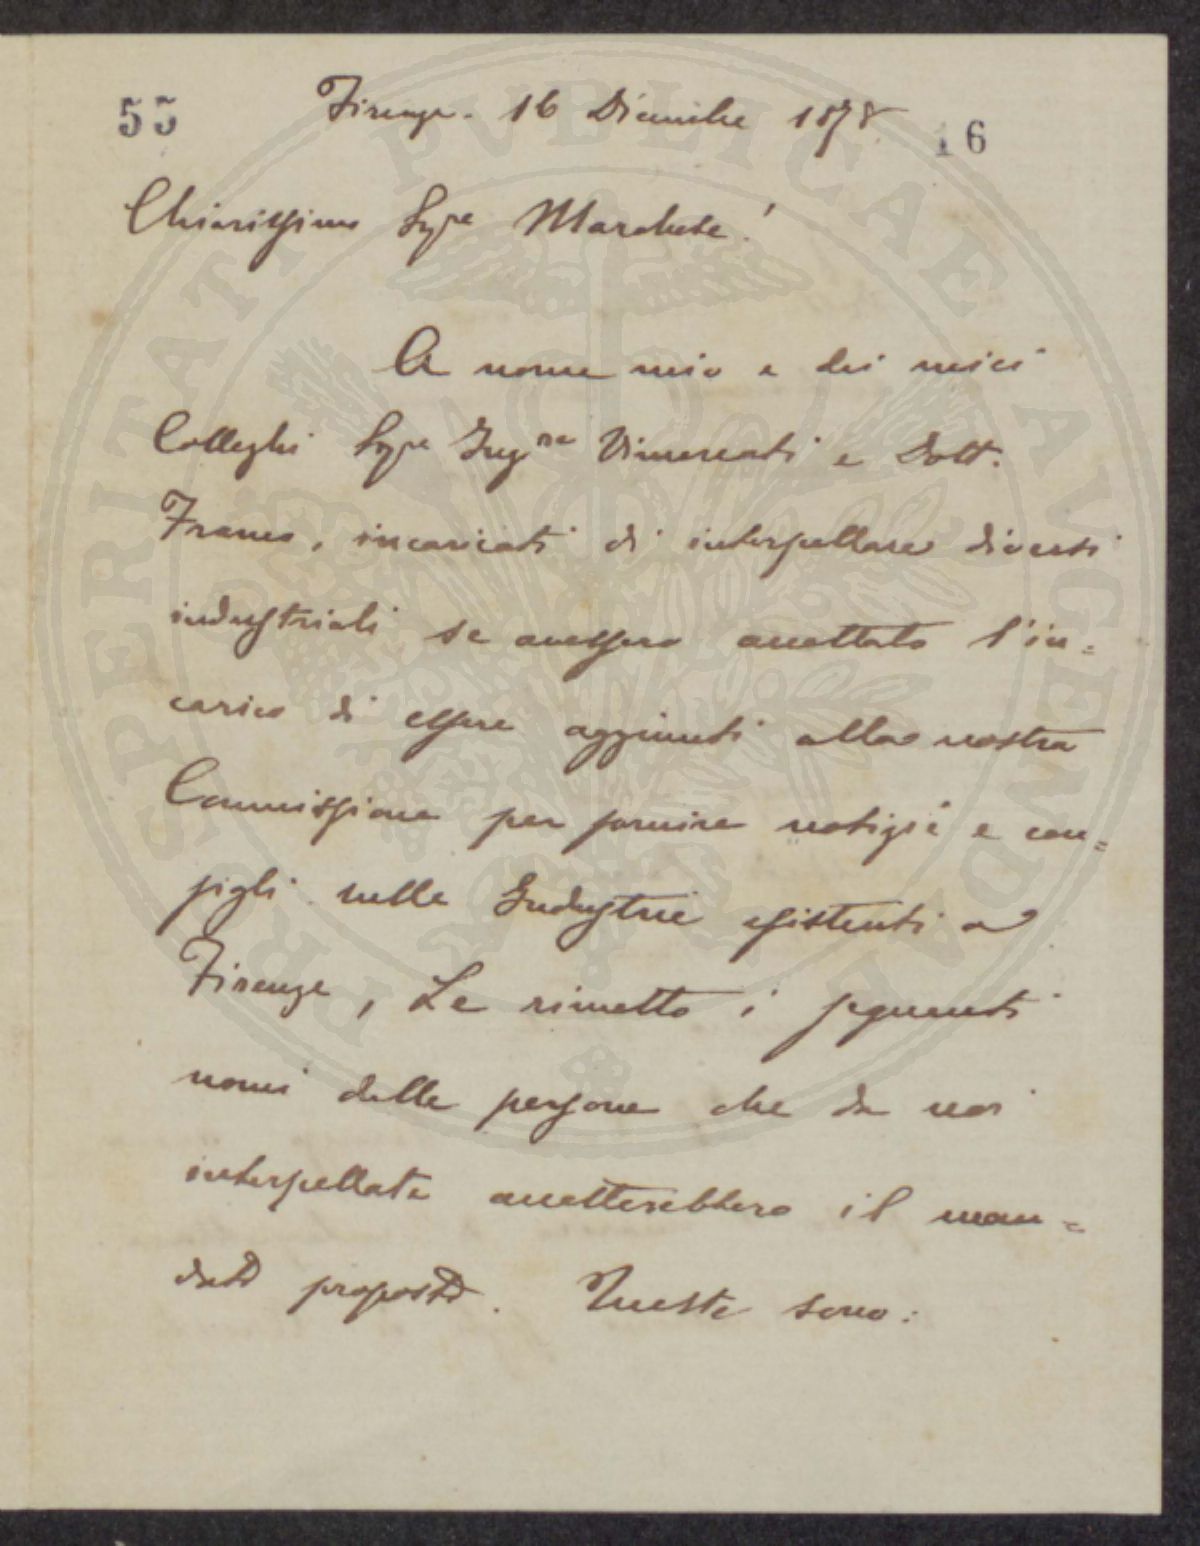 55 Firenze. 16 Dicembre 1878 16
Chiarissimo Sigre Marchese!
A nome mio e dei miei
Colleghi Sigre Ingre Vimercati e Dott.
Franco, incaricati di interpellare diversi
industriali se avessero accettato l'in=
carico di essere aggiunti alla nostra
Commissione per fornire notizie e con=
sigli nelle Industrie esistenti a
Firenze, Le rimetto i seguenti
nomi delle persone che da noi
interpellate accetterebbero il man=
dato proposto. Queste sono:
PROSPERITATI PVBLICAE AVGENDAE